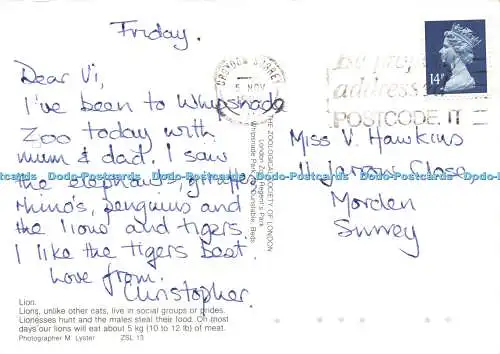 Friday.
Dear Vi,
I've been to Whipsnade
Zoo today with
mum & dad. I saw
the elephants, giraffes
rhino's, penguins and
the lions and tigers.
I like the tigers best.
Love from.
Christopher.
Lion.
Lions, unlike other cats, live in social groups or prides.
Lionesses hunt and the males steal their food. On most
days our lions will eat about 5 kg (10 to 12 lb) of meat.
Photographer M. Lyster ZSL 13
THE ZOOLOGICAL SOCIETY OF LONDON
London Zoo, Regent's Park,
Whipsnade Park, Dunstable, Beds.
CROYDON SURREY
NOV
address
POSTCODE IT
14P
Miss V. Hawkins
11 Close
Morden
Surrey
Dodo-Postcards Dodo-Postcards Dodo-Postcards Dodo-Postcards Dodo-Postcards